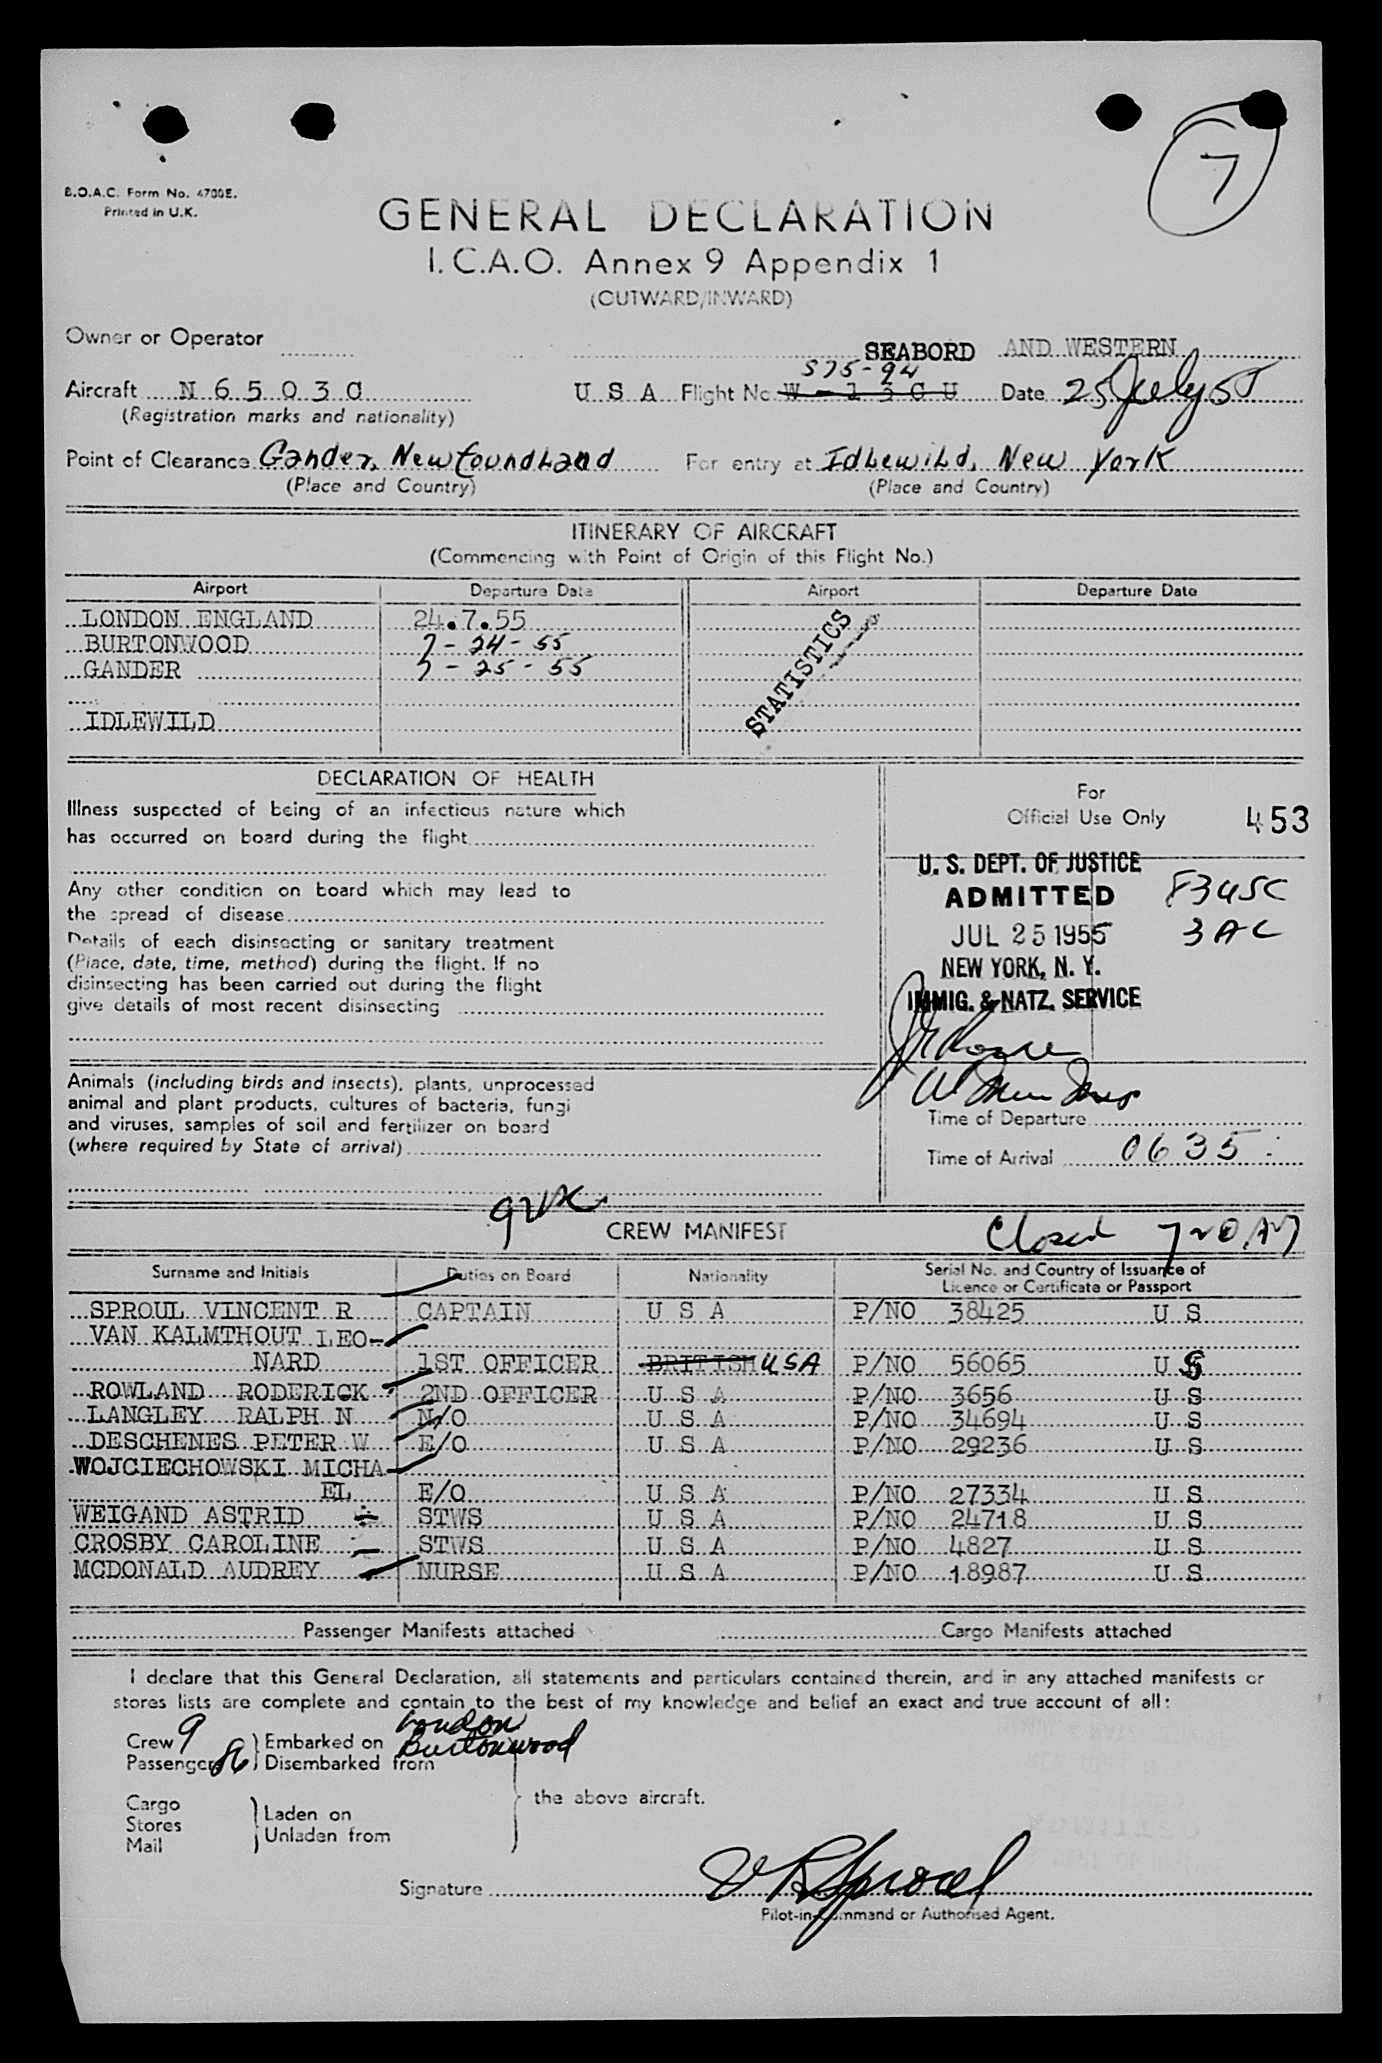 7
B.O.A.C. Form No. 4700E.
Printed in U.K.
GENERAL DECLARATION
I.C.A.O. Annex 9 Appendix 1
(OUTWARD/INWARD)
Owner or Operator SEABORD AND WESTERN
S75-94
Aircraft N 6 5 0 3 C U S A Flight No. W - 1 3 C U Date 25 July 55
(Registration marks and nationality)
Point of Clearance Gander, Newfoundland For entry at Idlewild, New York
(Place and Country) (Place and Country)
ITINERARY OF AIRCRAFT
(Commencing with Point of Origin of this Flight No.)
Airport Departure Date Airport Departure Date
LONDON ENGLAND 24.7.55
BURTONWOOD 7-24-55
GANDER 7-25-55
IDLEWILD
STATISTICS
DECLARATION OF HEALTH
Illness suspected of being of an infectious nature which
has occurred on board during the flight
Any other condition on board which may lead to
the spread of disease
Details of each disinsecting or sanitary treatment
(Place, date, time, method) during the flight. If no
disinsecting has been carried out during the flight
give details of most recent disinsecting
For
Official Use Only 453
U. S. DEPT. OF JUSTICE
ADMITTED
JUL 25 1955
NEW YORK, N. Y.
IMMIG. & NATZ. SERVICE
83USC
3 AC
Animals (including birds and insects), plants, unprocessed
animal and plant products, cultures of bacteria, fungi
and viruses, samples of soil and fertilizer on board
(where required by State of arrival)
Time of Departure
Time of Arrival 0635
CREW MANIFEST Closed 720 AM
Surname and Initials Duties on Board Nationality Serial No. and Country of Issuance of
Licence or Certificate or Passport
SPROUL VINCENT R CAPTAIN U S A P/NO 38425 U S
VAN KALMTHOUT LEO-
NARD 1ST OFFICER BRITISH USA P/NO 56065 U S
ROWLAND RODERICK 2ND OFFICER U S A P/NO 3656 U S
LANGLEY RALPH N N/O U S A P/NO 34694 U S
DESCHENES PETER W E/O U S A P/NO 29236 U S
WOJCIECHOWSKI MICHA-
EL E/O U S A P/NO 27334 U S
WEIGAND ASTRID STWS U S A P/NO 24718 U S
CROSBY CAROLINE STWS U S A P/NO 4827 U S
MCDONALD AUDREY NURSE U S A P/NO 18987 U S
Passenger Manifests attached Cargo Manifests attached
I declare that this General Declaration, all statements and particulars contained therein, and in any attached manifests or
stores lists are complete and contain to the best of my knowledge and belief an exact and true account of all:
London
Crew 9 Embarked on Burtonwood
Passengers 86 Disembarked from
the above aircraft.
Cargo
Stores
Mail
Laden on
Unladen from
Signature V R Sproul
Pilot-in-Command or Authorised Agent.